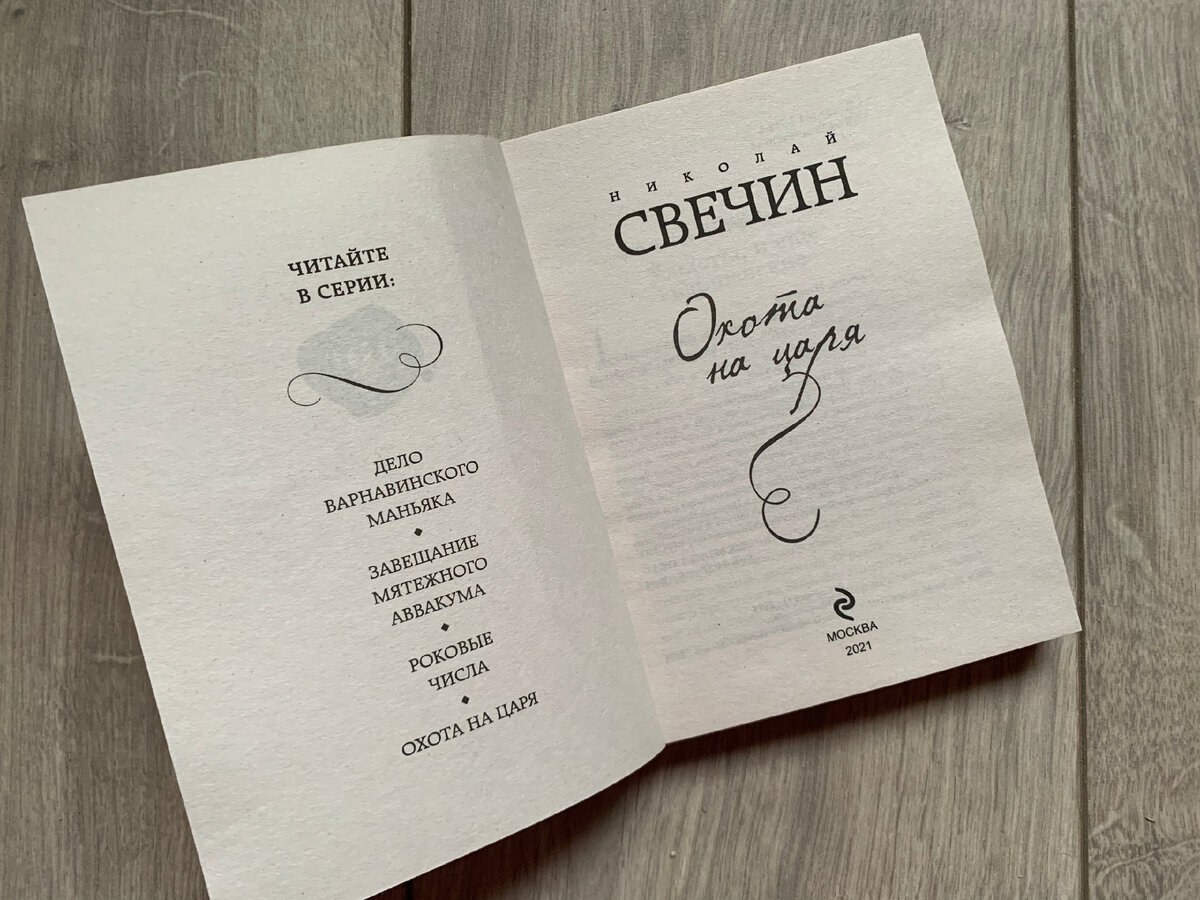 ЧИТАЙТЕ
В СЕРИИ:
ДЕЛО
ВАРНАВИНСКОГО
МАНЬЯКА
ЗАВЕЩАНИЕ
МЯТЕЖНОГО
АВВАКУМА
РОКОВЫЕ
ЧИСЛА
ОХОТА НА ЦАРЯ
НИКОЛАЙ
СВЕЧИН
Охота
на царя
МОСКВА
2021